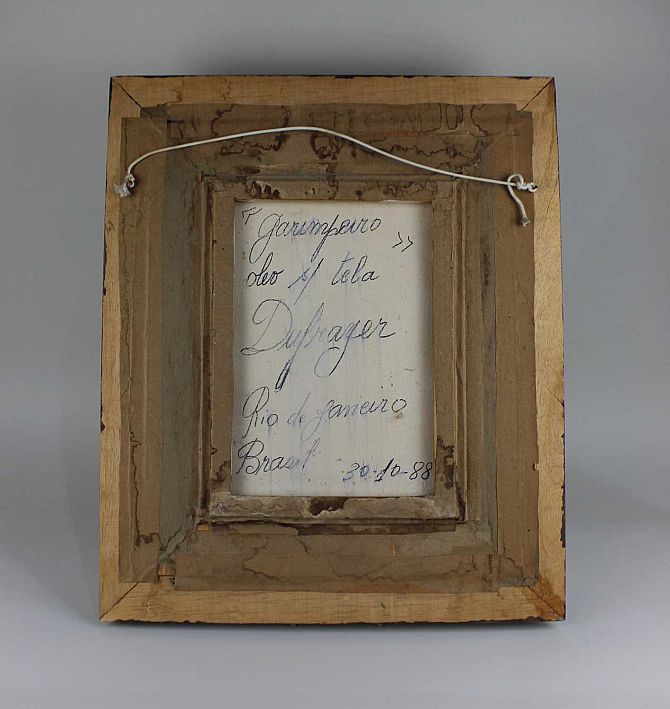 " Garimpeiro >>
oleo s/ tela
Dufrayer
Rio de Janeiro
Brasil 30-10-88